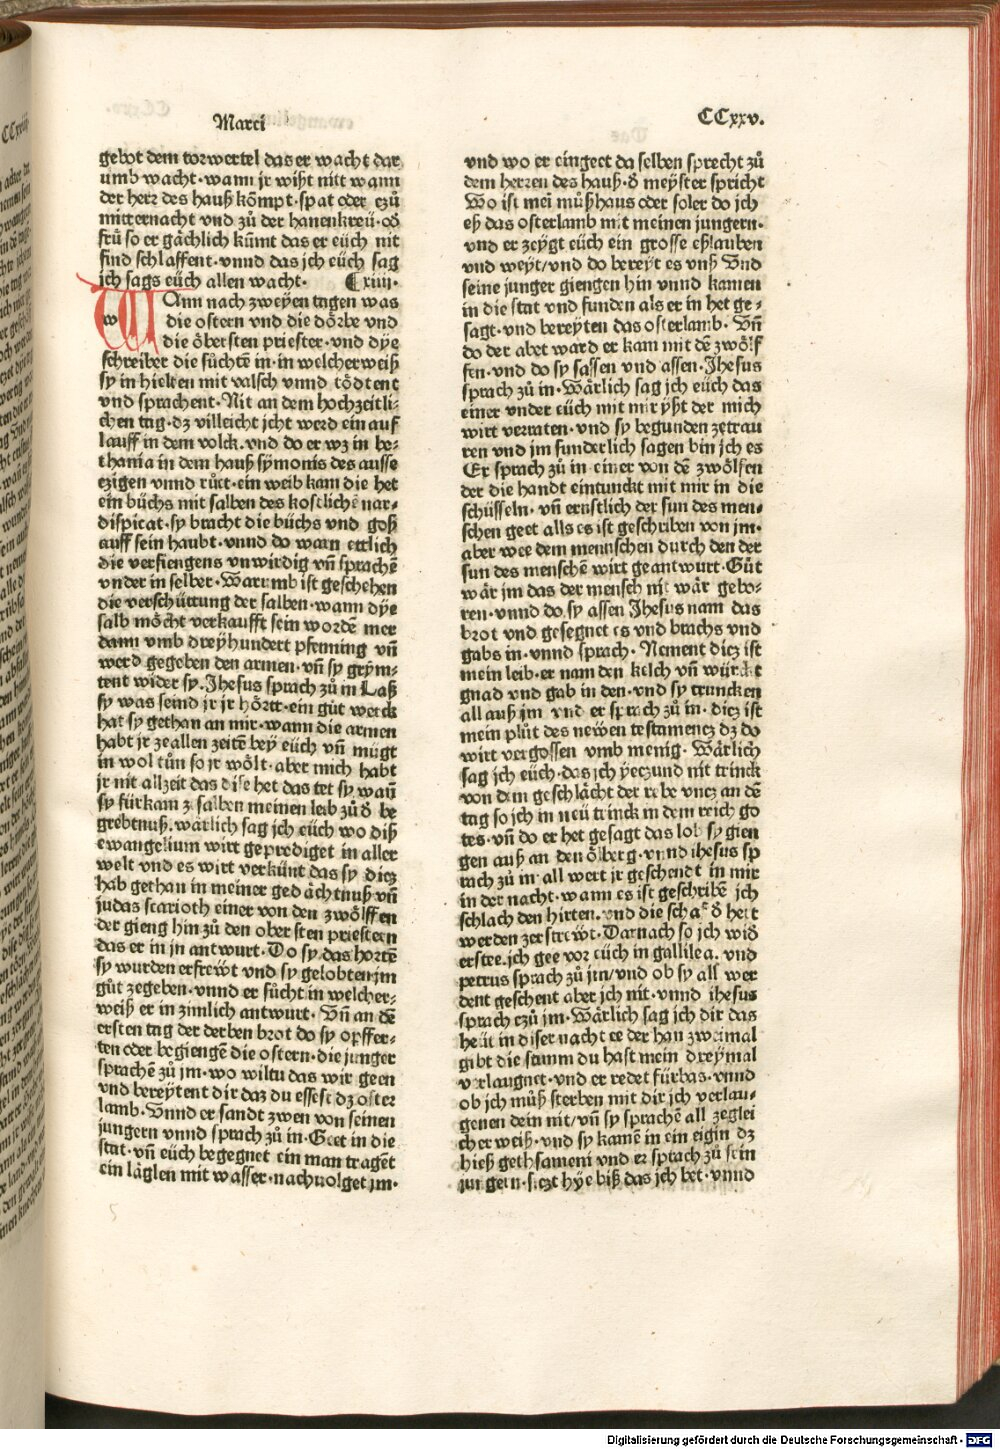 Marci
CCxxv.
gebot dem torwertel das er wacht dar
umb wacht·wann jr wißt nitt wann
der herr des hauß kömpt·spat oder czů
mitternacht vnd zů der hanenkreü·oð
frů so er gächlich kũmt das er eüch nit
find schlaffent·vnnd das jch eüch sag
jch sags eüch allen wacht· ℂxiiii·
WAnn nach zweyen tagen was
die ostern vnd die dörbe vnd
die öbersten priester·vnd dye
schreiber die sůchtẽ in·in welcherweiß
sy in hielten mit valsch vnnd tödtent
vnd sprachent·Nit an dem hochzeitli-
chen tag·dz villeicht jcht werd ein auf
lauff in dem volck.vnd do er wz in be-
thania in dem hauß symonis des ausse
czigen vnnd růtt·ein weib kam die het
ein büchs mit salben des kostlichẽ nar-
dispicat·sy bracht die büchs vnd goß
auff sein haubt·vnnd do warn ettlich
die verfiengens vnwirdig vñ sprachẽ
vnder in selber·Warumb ist geschehen
die verschüttung der salben·wann dye
salb möcht verkaufft sein wordẽ mer
dann vmb dreyhundert pfenning vñ
werd gegeben den armen·vñ sy grym-
tent wider sy.Jhesus sprach zů in Laß
sy was seind jr jr hörtt·ein gůt werck
hat sy gethan an mir·wann die armen
habt jr zeallen zeitẽ bey eüch vñ mügt
in wol tůn so jr wölt·aber mich habt
jr nit allzeit das dise het das tet sy wañ
sy fürkam ze salben meinen leib zů ð be
grebtnuß.wärlich sag jch eüch wo diß
ewangelium wirt geprediget in aller
welt vnd es wirt verkünt das sy dicz
hab gethan in meiner gedächtnuß vñ
judas scarioth einer von den zwölffen
der gieng hin zů den obersten priestern
das er in jn antwurt·Do sy das hortẽ
sy wurden erfrewt vnd sy gelobten jm
gůt zegeben·vnnd er sůcht in welcher-
weiß er in zimlich antwurt·Vñ an dẽ
ersten tag der derben brot do sy opffer-
ten oder begiengẽ die ostern·die junger
sprachẽ zů jm·wo wiltu das wir geen
vnd bereytent dir daz du essest dz oster
lamb·Vnnd er sandt zwen von seinen
jungern vnnd sprach zů in·Geet in die
stat·vñ eüch begegnet ein man tragẽt
ein läglen mit wasser·nachuolget jm·
vnd wo er eingeet da selben sprecht zů
dem herren des hauß·ð meyster spricht
Wo ist mei můßhaus oder soler do jch
eß das osterlamb mit meinen jungern·
vnd er zeygt eüch ein grosse eßlauben
vnd weyt/vnd do bereyt es vnß Vnd
seine junger giengen hin vnnd kamen
in die stat vnd funden als er in het ge-
sagt·vnd bereyten das osterlamb·Vñ
do der abet ward er kam mit dẽ zwölf
fen·vnd do sy sassen vnd assen·Jhesus
sprach zů in·Wärlich sag jch eüch das
einer vnder eüch mit mir yßt der mich
wirt verraten·vnd sy begunden zetrau
ren vnd jm sunderlich sagen bin jch es
Er sprach zů in einer von dẽ zwölfen
der die handt eintunckt mit mir in die
schüsseln·vñ ernstlich der sun des men-
schen geet alls es ist geschriben von jm·
aber wee dem mennschen durch den der
sun des menschẽ wirt geantwurt·Gůt
wär jm das der mensch nit wär gebo-
ren·vnnd do sy assen Jhesus nam das
brot vnd gesegnet es vnd brachs vnd
gabs in·vnnd sprach·Nement dicz ist
mein leib·er nam den kelch vñ würcket
gnad vnd gab in den·vnd sy truncken
all auß jm vnd er sprach zů in·dicz ist
mein plůt des newen testamencz dz do
wirt vergossen vmb menig·Wärlich
sag jch eüch·das jch yeczund nit trinck
von dem geschlächt der rebe vncz an dẽ
tag so jch in neü trinck in dem reich go
tes·vñ do er het gesagt das lob sy gien
gen auß an den ölberg·vnnd ihesus sp
rach zů in all wert jr geschendt in mir
in der nacht·wann es ist geschribẽ jch
schlach den hirten.vnd die schaf ð hert
werden zerstrewt·Darnach so jch wið
erstee.jch gee vor eüch in gallilea.vnd
petrus sprach zů jm/vnd ob sy all wer
dent geschent aber jch nit·vnnd ihesus
sprach czů jm·Wärlich sag jch dir das
heüt in diser nacht ee der han zweimal
gibt die stimm du hast mein dreymal
verlaugnet·vnd er redet fürbas·vnnd
ob jch můß sterben mit dir jch verlau-
genen dein nit/vñ sy sprachẽ all zeglei
cher weiß·vnd sy kamẽ in ein eigin dz
hieß gethsameni vnd er sprach zů sein
jungern·siczt hye biß das jch bet·vnnd
Digitalisierung gefördert durch die Deutsche Forschungsgemeinschaft - DFG